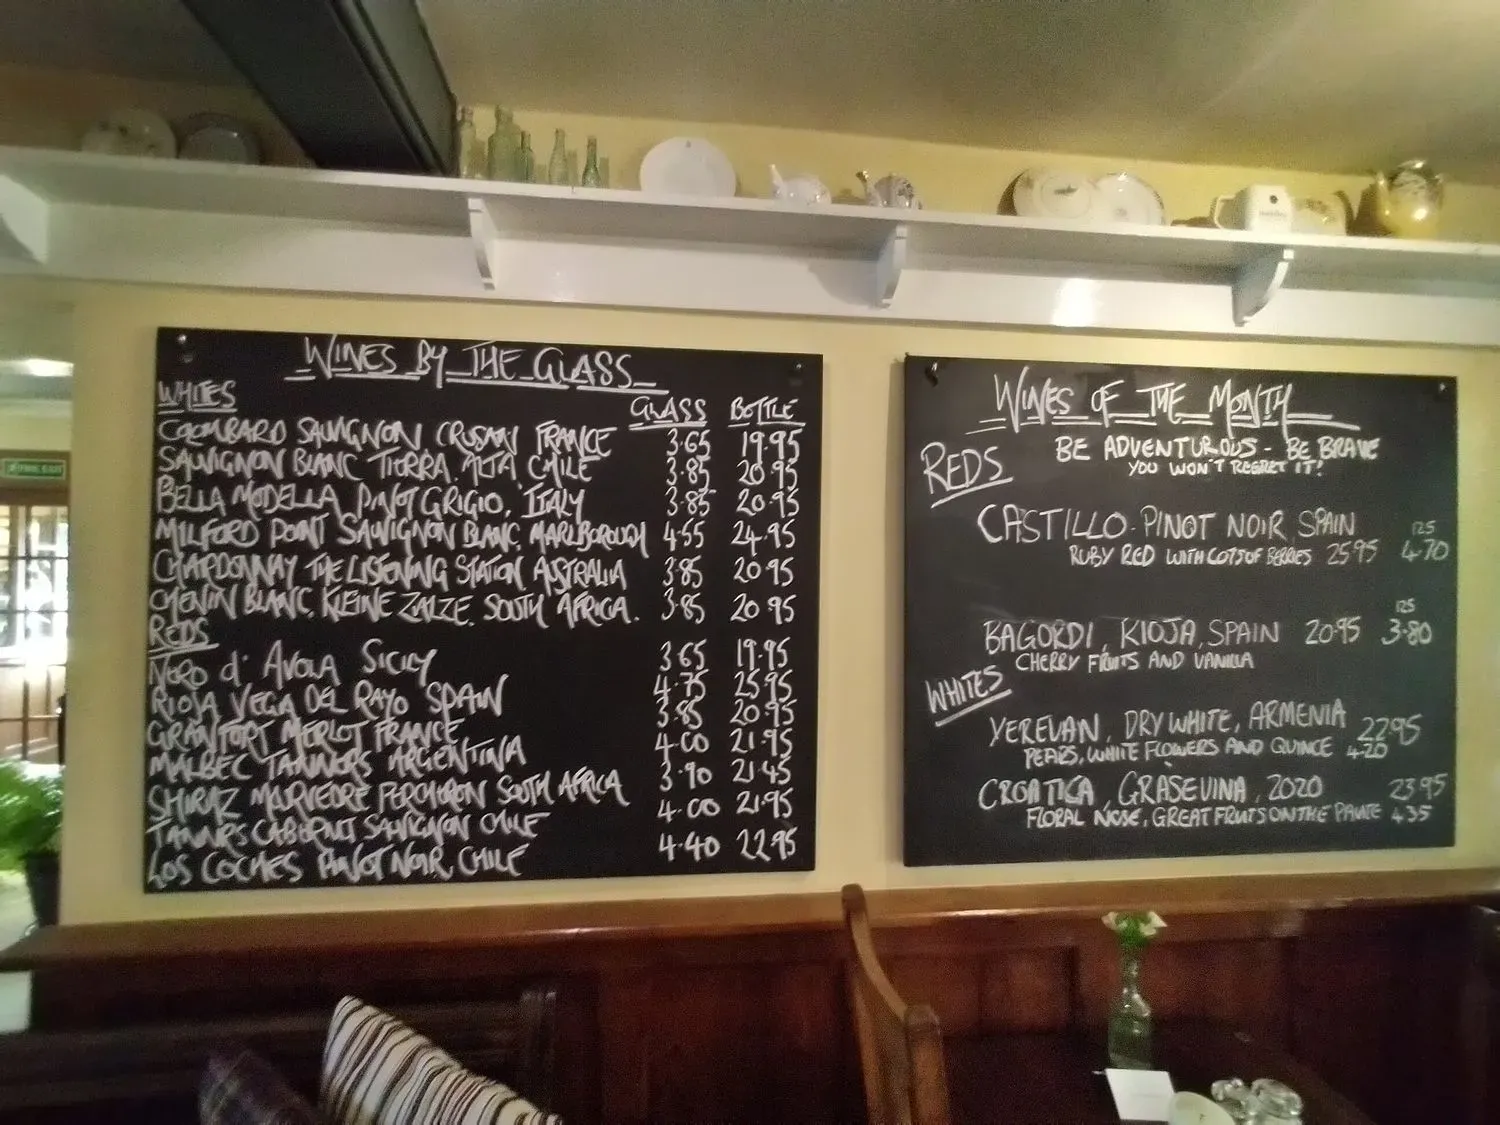 WINES BY THE GLASS
WHITES GLASS BOTTLE
COLOMBARD SAUVIGNON FRANCE 3.65 19.95
SAUVIGNON BLANC TIERRA ALTA, CHILE 3.85 20.95
BELLA MODELLA, PINOT GRIGIO, ITALY 3.85 20.95
MILFORD POINT SAUVIGNON BLANC, MARLBOROUGH 4.55 24.95
CHARDONNAY THE LISTENING STATION, AUSTRALIA 3.85 20.95
CHENIN BLANC, KLEINE ZALZE, SOUTH AFRICA. 3.85 20.95
REDS
NERO d' AVOLA SICILY 3.65 19.95
RIOJA VEGA DEL RAYO SPAIN 4.75 25.95
GRAN FORT MERLOT FRANCE 3.85 20.95
MALBEC TANNERS ARGENTINA 4.00 21.95
SHIRAZ MOURVEDRE PERCHERON SOUTH AFRICA 3.90 21.45
TANNERS CABERNET SAUVIGNON CHILE 4.00 21.95
LOS COCHES PINOT NOIR, CHILE 4.40 22.95
WINES OF THE MONTH
BE ADVENTUROUS - BE BRAVE
YOU WON'T REGRET IT!
REDS
CASTILLO - PINOT NOIR, SPAIN 125
RUBY RED WITH LOTS OF BERRIES 25.95 4.70
125
BAGORDI, RIOJA, SPAIN 20.95 3.80
CHERRY FRUITS AND VANILLA
WHITES
YEREVAN, DRY WHITE, ARMENIA 22.95
PEARS, WHITE FLOWERS AND QUINCE 4.20
CROATICA, GRASEVINA, 2020 23.95
FLORAL NOSE, GREAT FRUITS ON THE PALATE 4.35